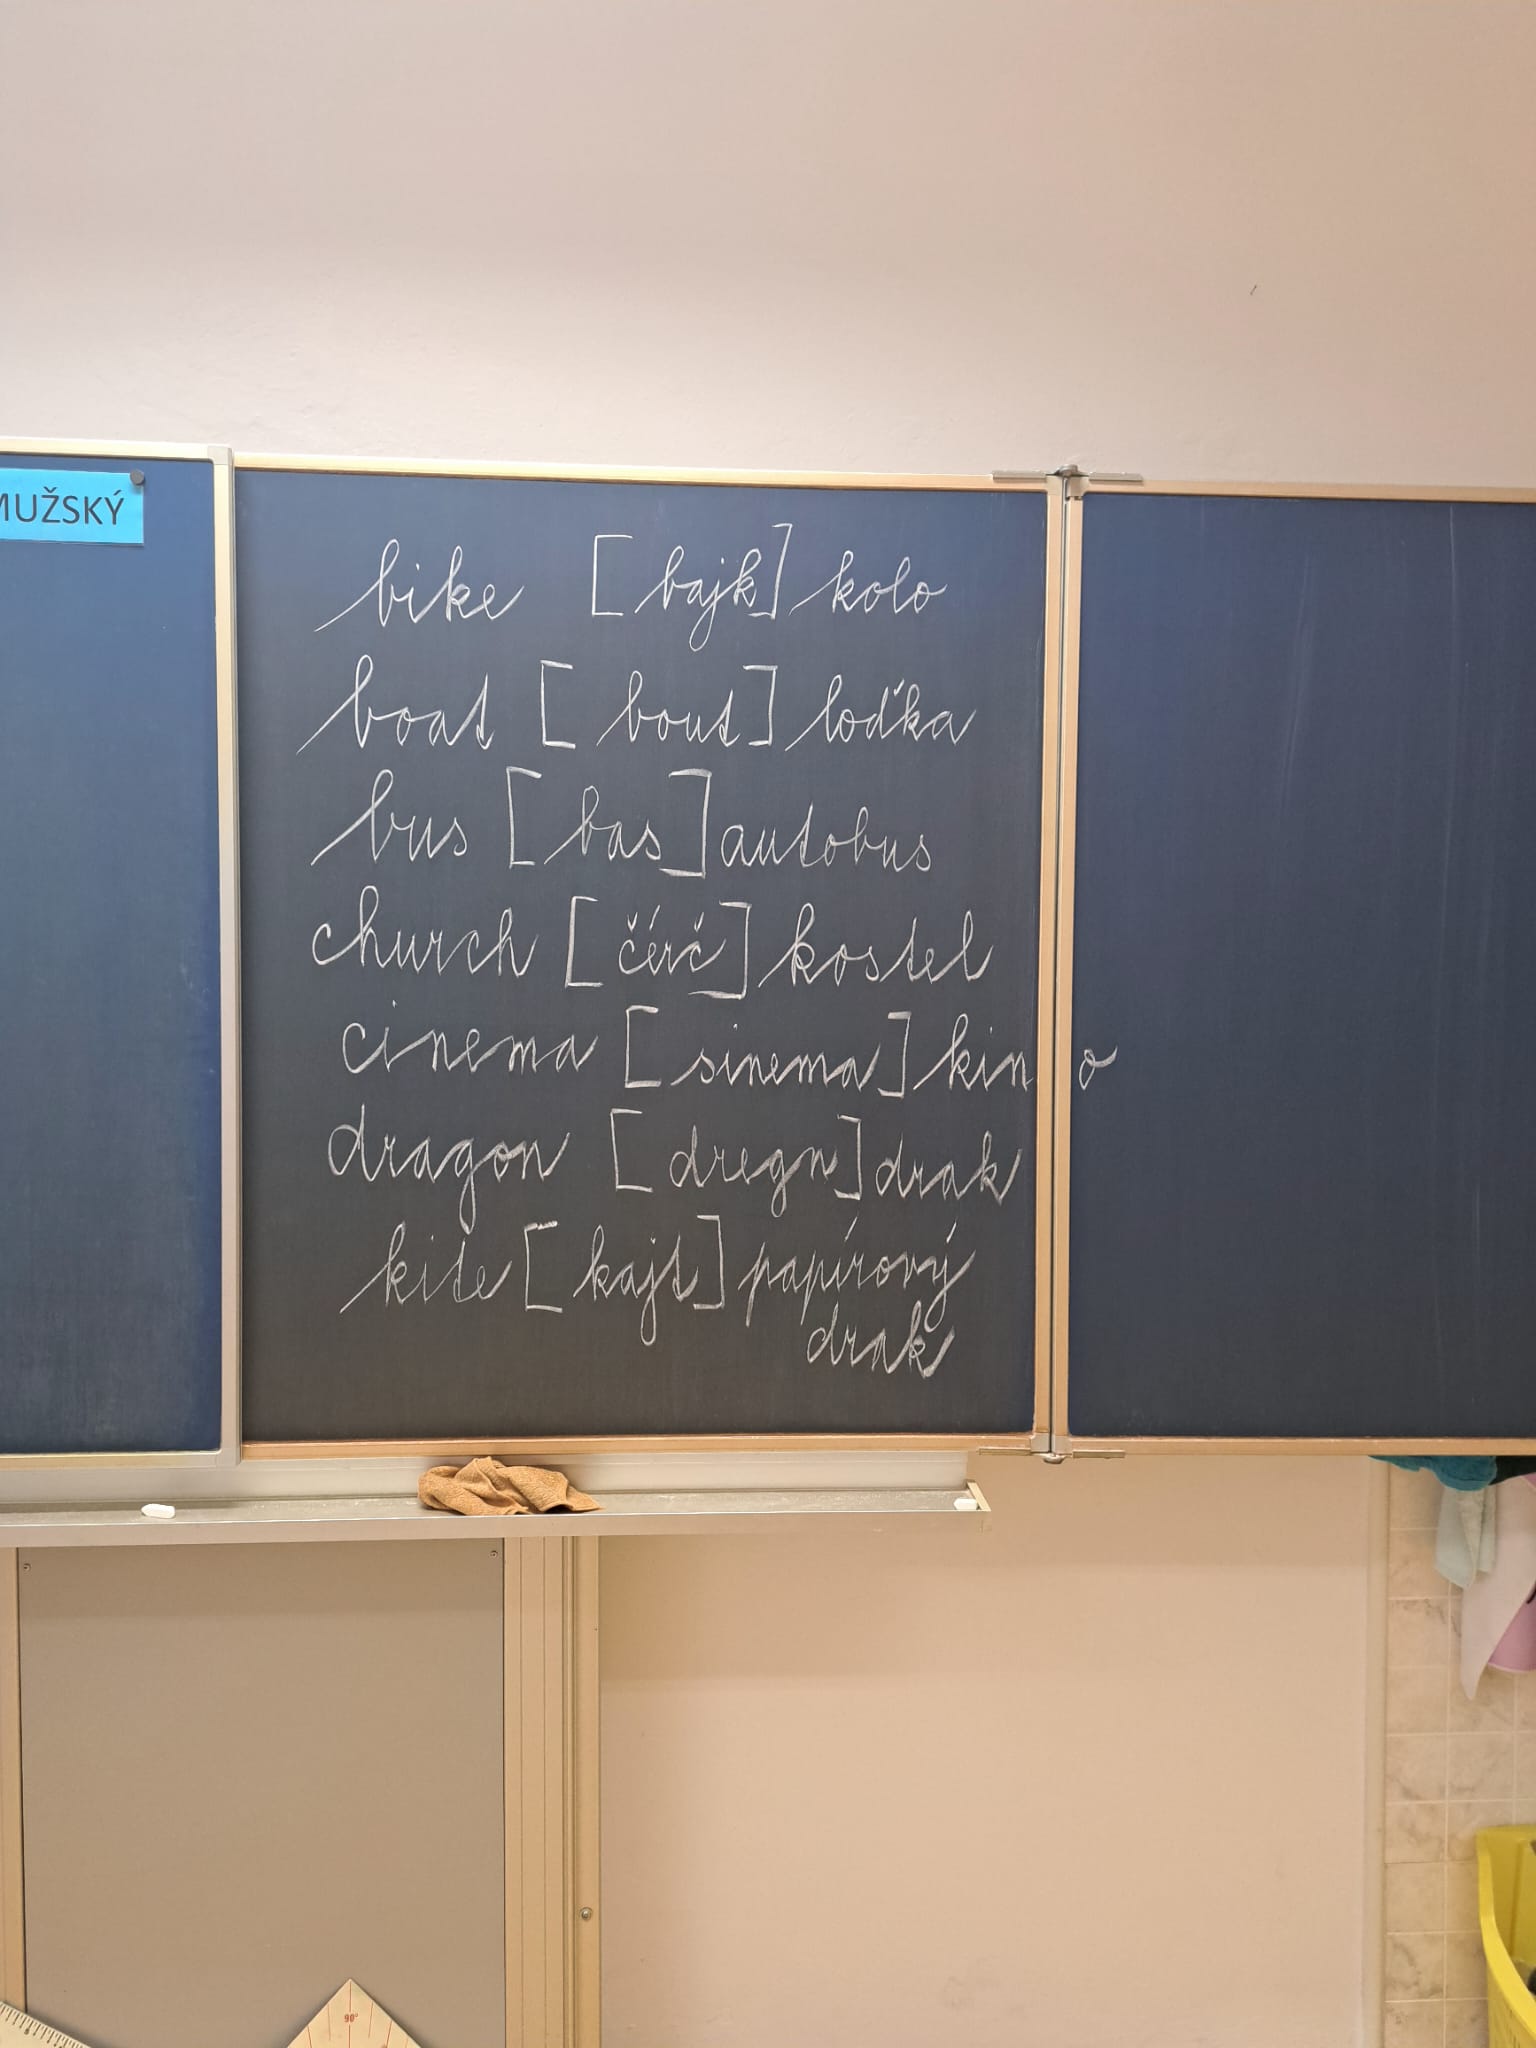 MUŽSKÝ
bike [bajk] kolo
boat [bout] loďka
bus [bas] autobus
church [čérč] kostel
cinema [sinema] kino
dragon [dregn] drak
kite [kajt] papírový
drak
90°